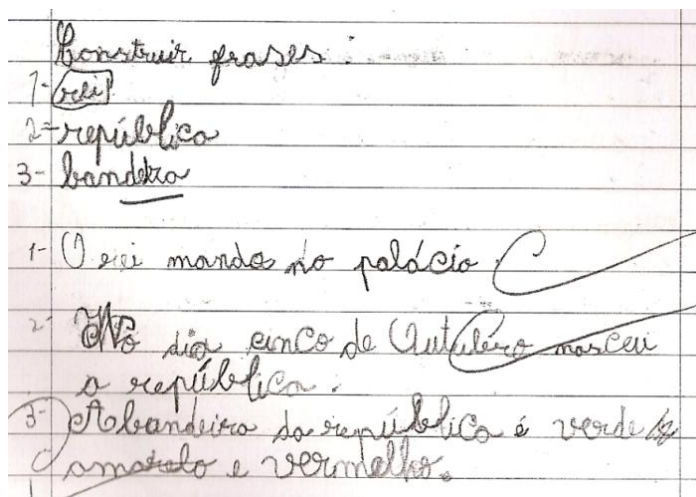 Construir frases:
1- rei
2- república
3- bandeira
1- O rei manda no palácio.
2- No dia cinco de Outubro nasceu
a república.
3- A bandeira da república é verde
amarelo e vermelho.